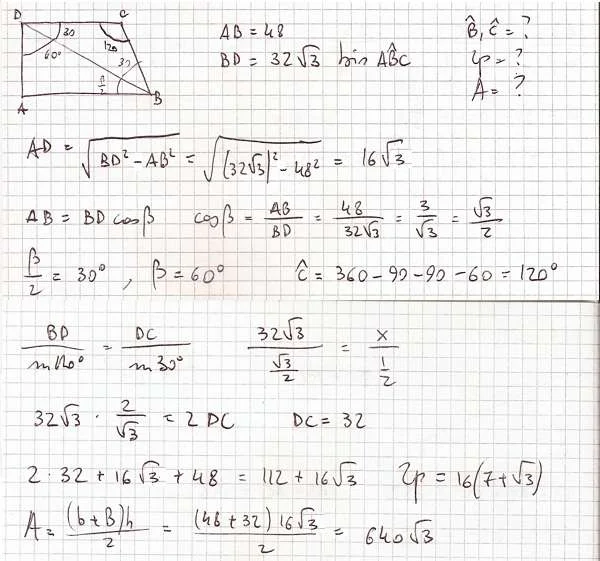 D C
30 120
60° 30
β/2
A B
AB = 48
BD = 32√3 bis AB̂C
B̂, Ĉ = ?
2p = ?
A = ?
AD = √(BD² − AB²) = √((32√3)² − 48²) = 16√3
AB = BD cosβ cosβ = AB/BD = 48/32√3 = 3/√3 = √3/2
β/2 = 30°, β = 60° Ĉ = 360 − 90 − 90 − 60 = 120°
BD/m120° = DC/m30° 32√3/(√3/2) = x/(1/2)
32√3 · 2/√3 = 2 DC DC = 32
2 · 32 + 16√3 + 48 = 112 + 16√3 2p = 16(7 + √3)
A = (b + B)h/2 = (48 + 32) 16√3/2 = 640√3